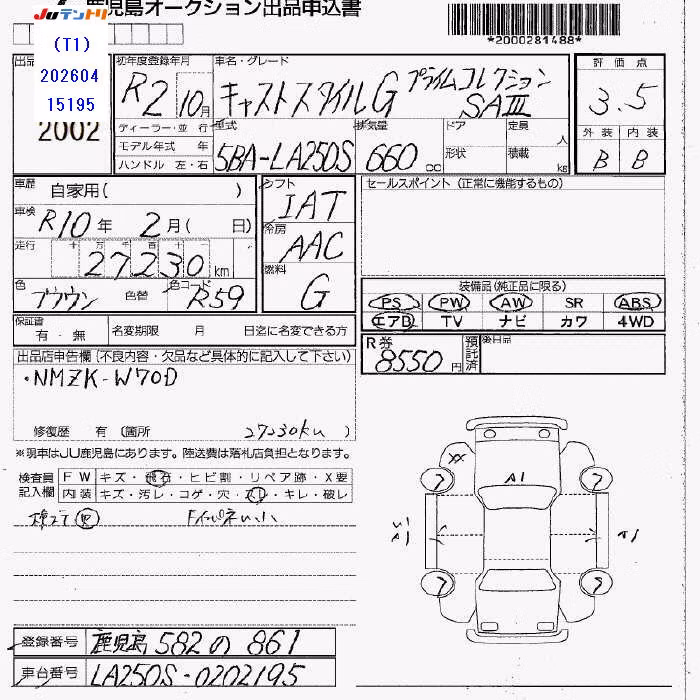 JUテントリ 鹿児島オークション出品申込書
*2000281488*
(T1)
202604
15195
出品
2002
初年度登録年月
R2 10月
車名・グレード
キャストスタイルG プライムコレクション SAⅢ
評価点
3.5
外装 内装
B B
ディーラー・並行
モデル年式 年
ハンドル 左・右
型式
5BA-LA250S
排気量
660 cc
ドア
形状
定員 人
積載 kg
車歴 自家用( )
車検 R10年 2月( 日)
走行 十 万 千 百 十
27230km
色 ブラウン 色替 色コード R59
シフト
IAT
冷房
AAC
燃料
G
セールスポイント (正常に機能するもの)
装備品(純正品に限る)
PS PW AW SR ABS
エアB TV ナビ カワ 4WD
保証書 有・無 名変期限 月 日迄に名変できる方
R券 8550円 預託済 後日品
出品店申告欄(不良内容・欠品など具体的に記入して下さい)
・NMZK-W70D
修復歴 有 (箇所 27230km )
※現車はJU鹿児島にあります。陸送費は落札店負担となります。
検査員記入欄
FW キズ・飛石・ヒビ割・リペア跡・X要
内装 キズ・汚レ・コゲ・穴・スレ・キレ・破レ
XX
A1
A1
登録番号 鹿児島 582 の 861
車台番号 LA250S-0202195